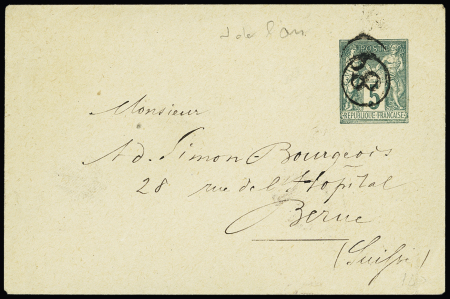 J de 8 an
5
RÉPUBLIQUE FRANÇAISE
Monsieur
Ad. Simon Bourgeois
28 rue de l'Hopital
Berne
(Suisse)